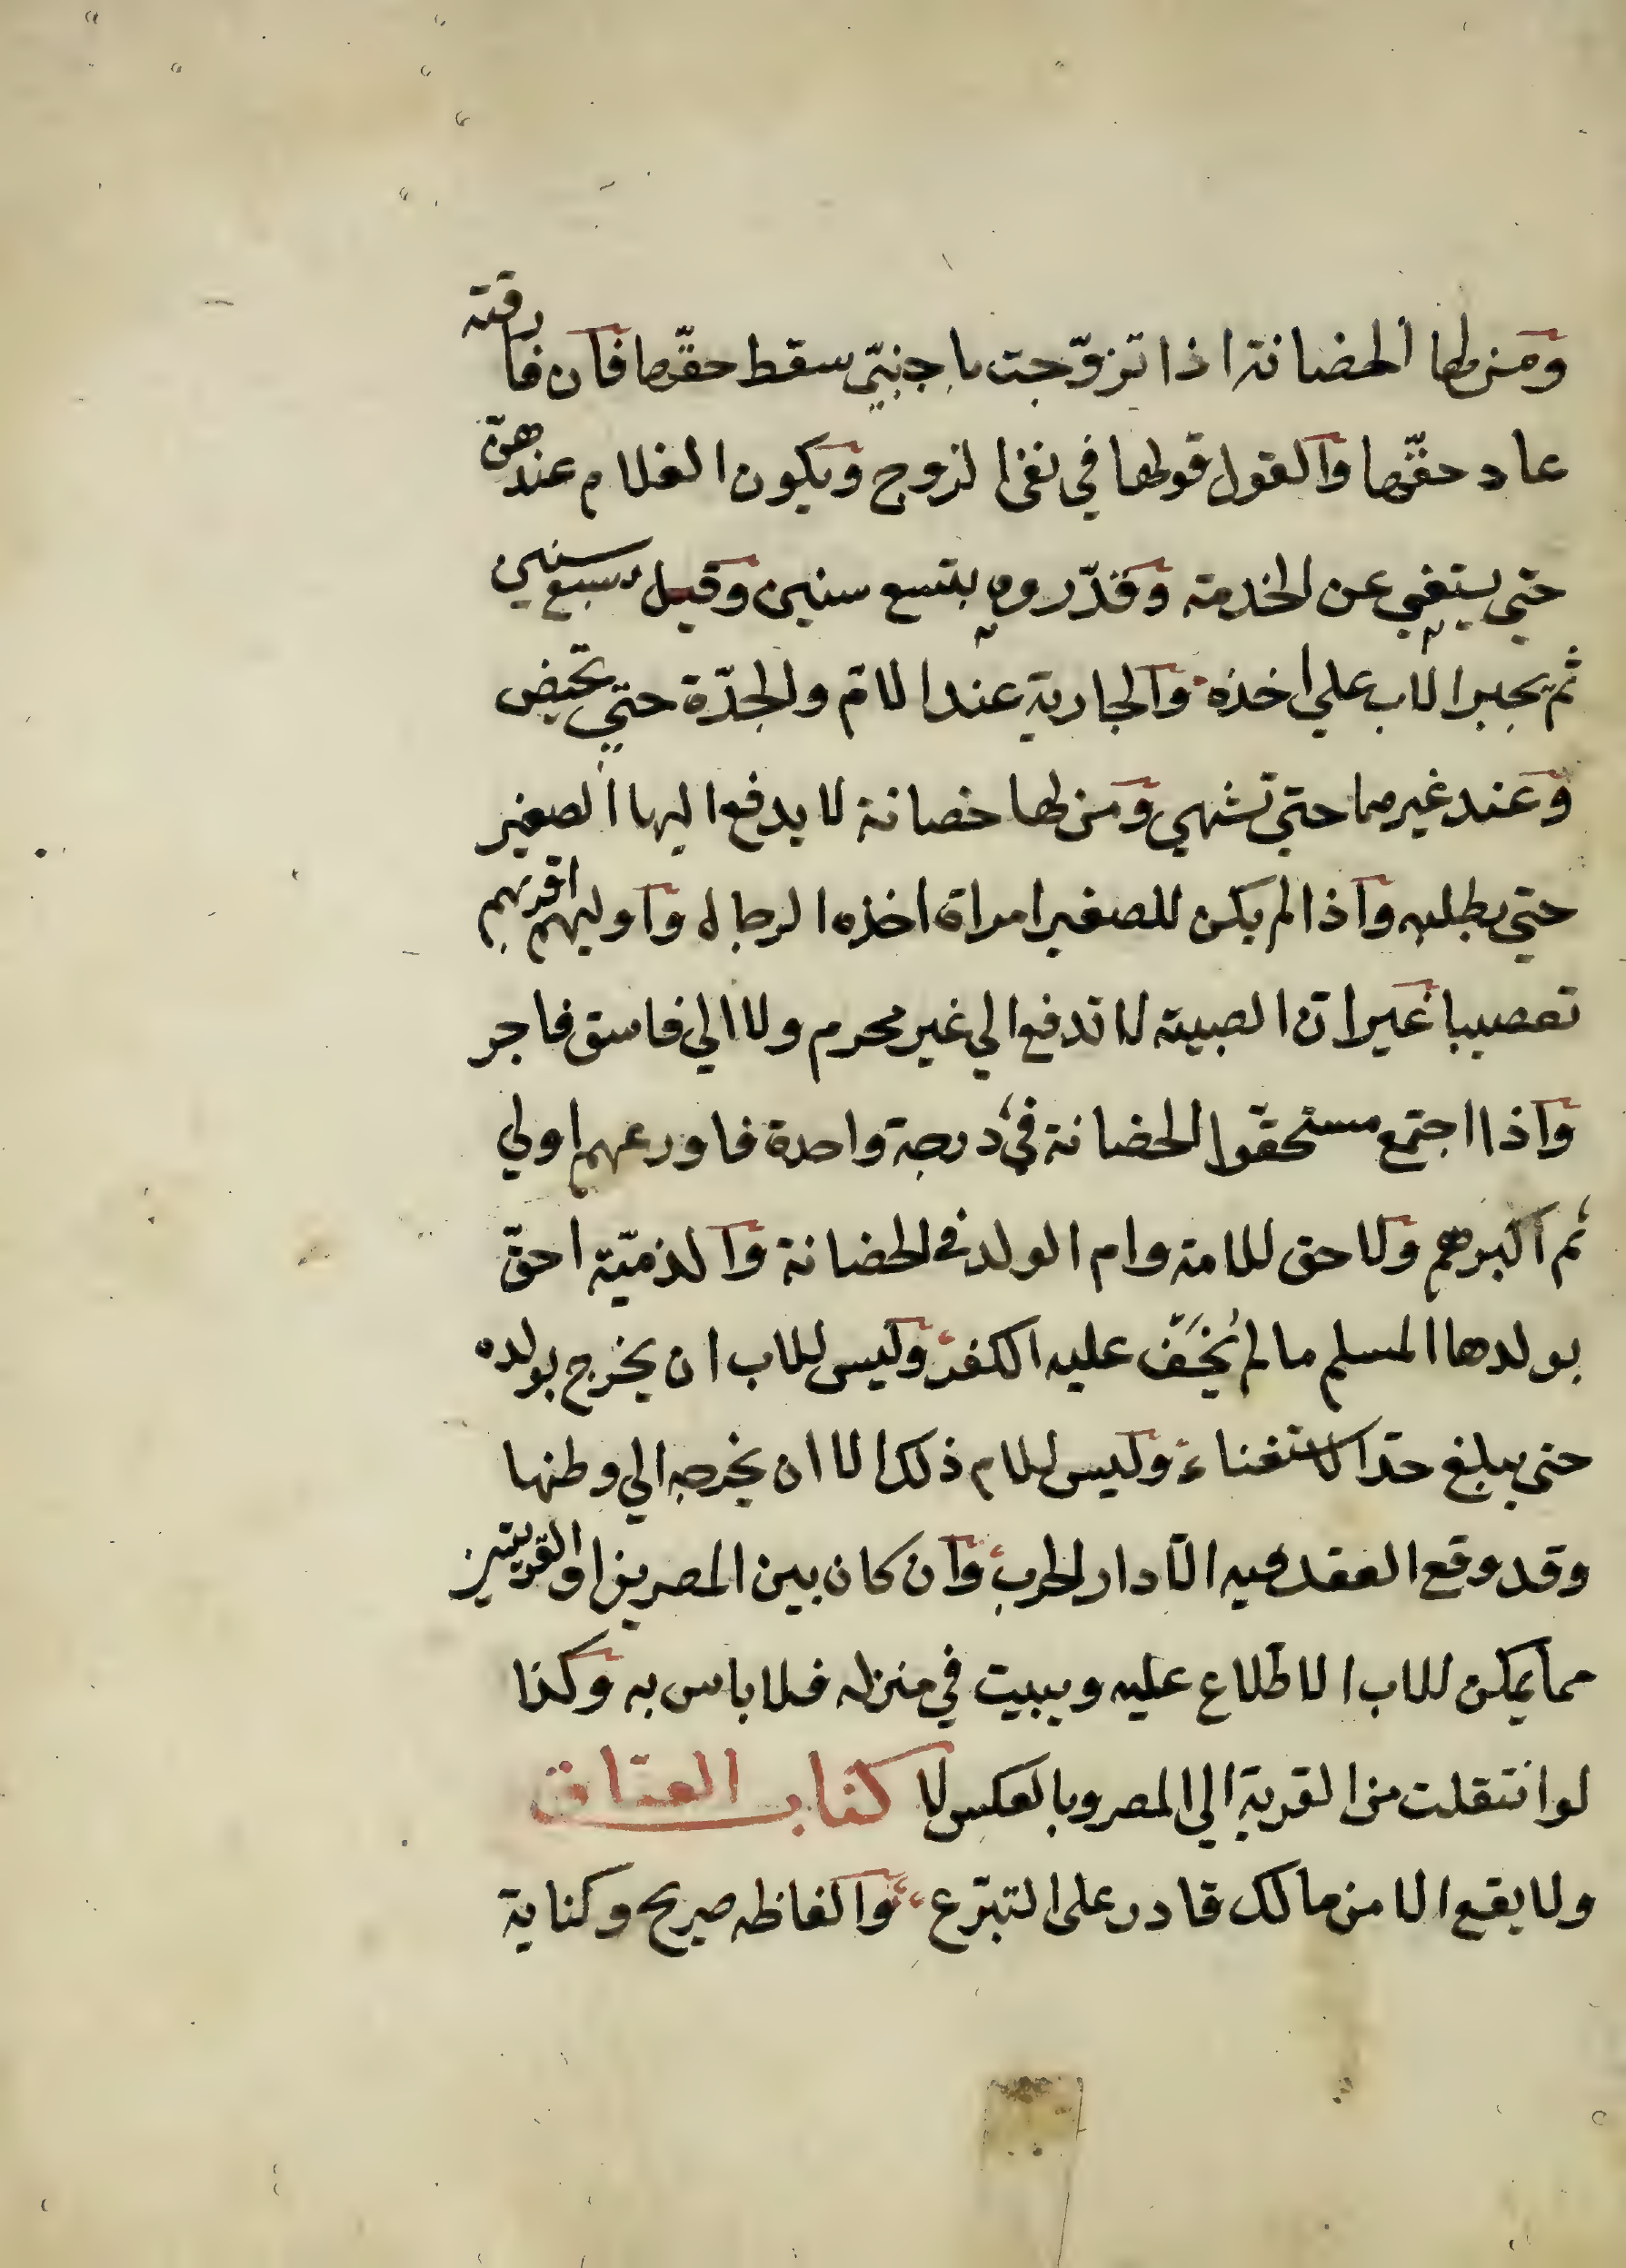 ومن لها الحضانة اذا تزوّجت باجنبيّ سقط حقّها فان فارقته
عاد حقّها والقول قولها في نفي الزوج ويكون الغلام عندهنّ
حتي يستغني عن الخدمة وقدّروه بتسع سنين وقيل بسبع سنين
ثم يجبر الاب علي اخذه والجارية عند الامّ والجدّة حتي تحيض
وعند غيرهما حتي تشتهي ومن لها حضانة لا يدفع اليها الصغير
حتي يطلبه واذا لم يكن للصغير امراة اخذه الرجال واوليهم اقربهم
تعصيبا غير انّ الصبية لا تدفع الي غير محرم ولا الي فاسق فاجر
واذا اجتمع مستحقوا الحضانة في درجة واحدة فاورعهم اولي
ثم اكبرهم ولا حق للامة وام الولد في الحضانة والذميّة احقّ
بولدها المسلم ما لم يُخَفّ عليه الكفر وليس للاب ان يخرج بولده
حتي يبلغ حدّ الاستغناء وليس للام ذلك الا ان يخرجه الي وطنها
وقد وقع العقد فيه الّا دار الحرب وان كان بين المصرين او القريتين
مما يمكن للاب الاطلاع عليه ويبيت في منزله فلا باس به وكذا
لو انتقلت من القرية الي المصر وبالعكس لا كتاب العتاق
ولا يقع الا من مالك قادر على التبرّع والفاظه صريح وكناية